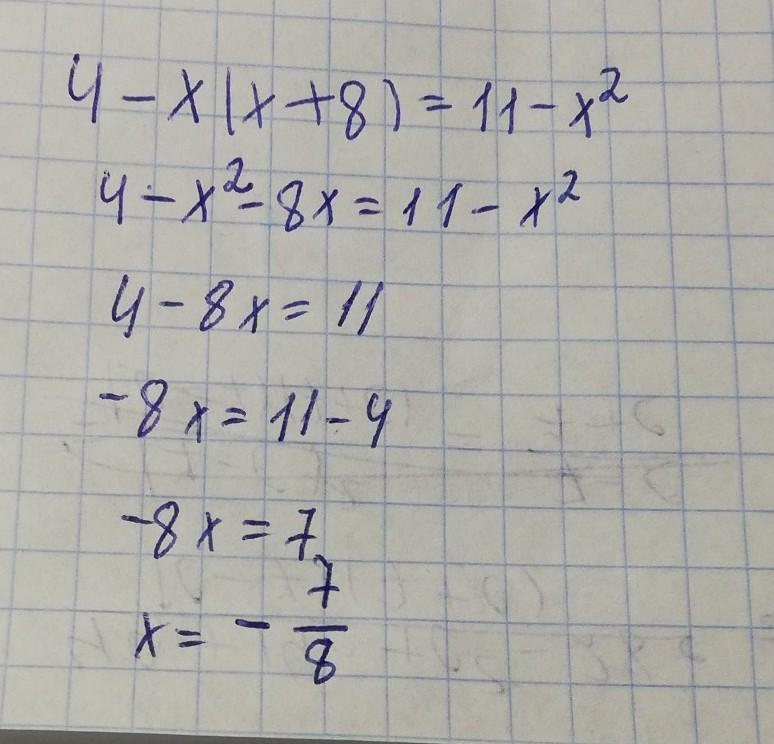 4 - x(x+8) = 11 - x²
4 - x² - 8x = 11 - x²
4 - 8x = 11
-8x = 11 - 4
-8x = 7
x = - 7/8